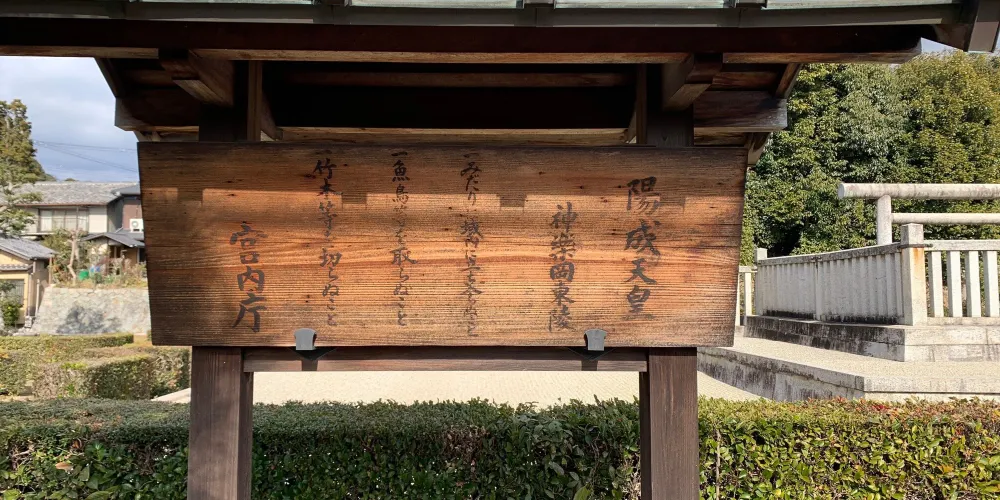 陽成天皇
神樂岡東陵
一みだりに域内に立入らぬこと
一魚鳥等を取らぬこと
一竹木等を切らぬこと
宮内庁